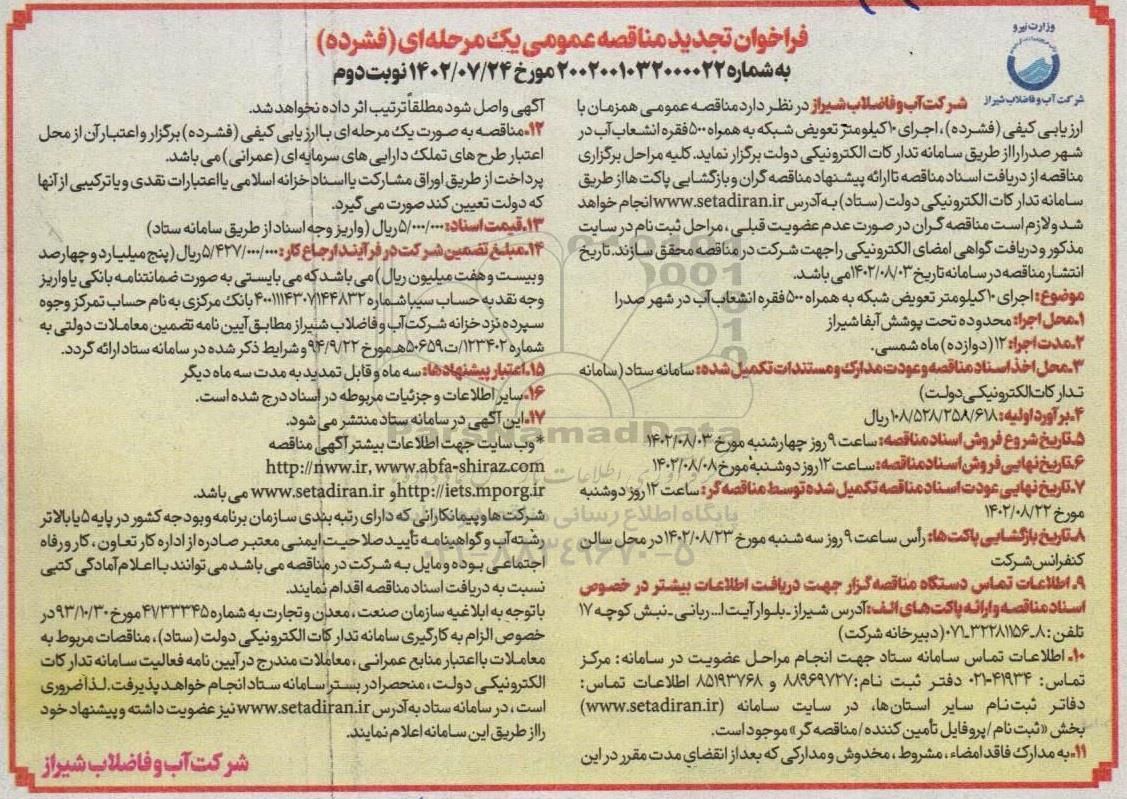 وزارت نیرو
شرکت آب و فاضلاب شیراز
فراخوان تجدید مناقصه عمومی یک مرحله‌ای (فشرده)
به شماره ۲۰۰۲۰۰۱۰۳۲۰۰۰۰۲۲ مورخ ۱۴۰۲/۰۷/۲۴ نوبت دوم
شرکت آب و فاضلاب شیراز در نظر دارد مناقصه عمومی همزمان با
ارزیابی کیفی (فشرده)، اجرای ۱۰ کیلومتر تعویض شبکه به همراه ۵۰۰ فقره انشعاب آب در
شهر صدرا را از طریق سامانه تدارکات الکترونیکی دولت برگزار نماید. کلیه مراحل برگزاری
مناقصه از دریافت اسناد مناقصه تا ارائه پیشنهاد مناقصه گران و بازگشایی پاکت ها از طریق
سامانه تدارکات الکترونیکی دولت (ستاد) به آدرس www.setadiran.ir انجام خواهد
شد و لازم است مناقصه گران در صورت عدم عضویت قبلی، مراحل ثبت نام در سایت
مذکور و دریافت گواهی امضای الکترونیکی را جهت شرکت در مناقصه محقق سازند. تاریخ
انتشار مناقصه در سامانه تاریخ ۱۴۰۲/۰۸/۰۳ می باشد.
موضوع: اجرای ۱۰ کیلومتر تعویض شبکه به همراه ۵۰۰ فقره انشعاب آب در شهر صدرا
۱ـ محل اجرا: محدوده تحت پوشش آبفا شیراز
۲ـ مدت اجرا: ۱۲ (دوازده) ماه شمسی.
۳ـ محل اخذ اسناد مناقصه و عودت مدارک و مستندات تکمیل شده: سامانه ستاد (سامانه
تدارکات الکترونیکی دولت)
۴ـ برآورد اولیه: ۱۰۸/۵۲۸/۲۵۸/۶۱۸ ریال
۵ـ تاریخ شروع فروش اسناد مناقصه: ساعت ۹ روز چهارشنبه مورخ ۱۴۰۲/۰۸/۰۳
۶ـ تاریخ نهایی فروش اسناد مناقصه: ساعت ۱۲ روز دوشنبه مورخ ۱۴۰۲/۰۸/۰۸
۷ـ تاریخ نهایی عودت اسناد مناقصه تکمیل شده توسط مناقصه گر: ساعت ۱۲ روز دوشنبه
مورخ ۱۴۰۲/۰۸/۲۲
۸ـ تاریخ بازگشایی پاکت ها: رأس ساعت ۹ روز سه شنبه مورخ ۱۴۰۲/۰۸/۲۳ در محل سالن
کنفرانس شرکت
۹ـ اطلاعات تماس دستگاه مناقصه گزار جهت دریافت اطلاعات بیشتر در خصوص
اسناد مناقصه و ارائه پاکت های الف: آدرس شیراز ـ بلوار آیت ا... ربانی ـ نبش کوچه ۱۷
تلفن: ۸ـ۳۲۲۸۱۱۵۶ـ۰۷۱ (دبیرخانه شرکت)
۱۰ـ اطلاعات تماس سامانه ستاد جهت انجام مراحل عضویت در سامانه: مرکز
تماس: ۴۱۹۳۴-۰۲۱ دفتر ثبت نام: ۸۸۹۶۹۷۳۷ و ۸۵۱۹۳۷۶۸ اطلاعات تماس:
دفاتر ثبت‌نام سایر استان‌ها، در سایت سامانه (www.setadiran.ir)
بخش «ثبت نام/پروفایل تأمین کننده/مناقصه گر» موجود است.
۱۱ـ به مدارک فاقد امضاء، مشروط، مخدوش و مدارکی که بعد از انقضای مدت مقرر در این
آگهی واصل شود مطلقاً ترتیب اثر داده نخواهد شد.
۱۲ـ مناقصه به صورت یک مرحله ای با ارزیابی کیفی (فشرده) برگزار و اعتبار آن از محل
اعتبار طرح های تملک دارایی های سرمایه ای (عمرانی) می باشد.
پرداخت از طریق اوراق مشارکت یا اسناد خزانه اسلامی یا اعتبارات نقدی و یا ترکیبی از آنها
که دولت تعیین کند صورت می گیرد.
۱۳ـ قیمت اسناد: ۵/۰۰۰/۰۰۰ ریال (واریز وجه اسناد از طریق سامانه ستاد)
۱۴ـ مبلغ تضمین شرکت در فرآیند ارجاع کار: ۵/۴۲۷/۰۰۰/۰۰۰ ریال (پنج میلیارد و چهارصد
و بیست و هفت میلیون ریال) می باشد که می بایستی به صورت ضمانتنامه بانکی یا واریز
وجه نقد به حساب سیبا شماره ۴۰۰۱۱۱۴۳۰۷۱۴۴۸۳۲ بانک مرکزی به نام حساب تمرکز وجوه
سپرده نزد خزانه شرکت آب و فاضلاب شیراز مطابق آیین نامه تضمین معاملات دولتی به
شماره ۱۲۳۴۰۲/ت۵۰۶۵۹هـ مورخ ۹۴/۹/۲۲ و شرایط ذکر شده در سامانه ستاد ارائه گردد.
۱۵ـ اعتبار پیشنهادها: سه ماه و قابل تمدید به مدت سه ماه دیگر
۱۶ـ سایر اطلاعات و جزئیات مربوطه در اسناد درج شده است.
۱۷ـ این آگهی در سامانه ستاد منتشر می شود.
* وب سایت جهت اطلاعات بیشتر آگهی مناقصه
http://nww.ir, www.abfa-shiraz.com
http://iets.mporg.ir و www.setadiran.ir می باشد.
شرکت ها و پیمانکارانی که دارای رتبه بندی سازمان برنامه و بودجه کشور در پایه ۵ یا بالاتر
رشته آب و گواهینامه تأیید صلاحیت ایمنی معتبر صادره از اداره کار تعاون، کار و رفاه
اجتماعی بوده و مایل به شرکت در مناقصه می باشد می توانند با اعلام آمادگی کتبی
نسبت به دریافت اسناد مناقصه اقدام نمایند.
با توجه به ابلاغیه سازمان صنعت، معدن و تجارت به شماره ۴۱/۳۳۳۴۵ مورخ ۹۳/۱۰/۳۰ در
خصوص الزام به کارگیری سامانه تدارکات الکترونیکی دولت (ستاد)، مناقصات مربوط به
معاملات با اعتبار منابع عمرانی، معاملات مندرج در آیین نامه فعالیت سامانه تدارکات
الکترونیکی دولت، منحصرا در بستر سامانه ستاد انجام خواهد پذیرفت. لذا ضروری
است، در سامانه ستاد به آدرس www.setadiran.ir نیز عضویت داشته و پیشنهاد خود
را از طریق این سامانه اعلام نمایند.
شرکت آب و فاضلاب شیراز
ParsNamadData
پایگاه اطلاع رسانی
۰۲۱-۸۸۳۴۹۶۷۰-۵